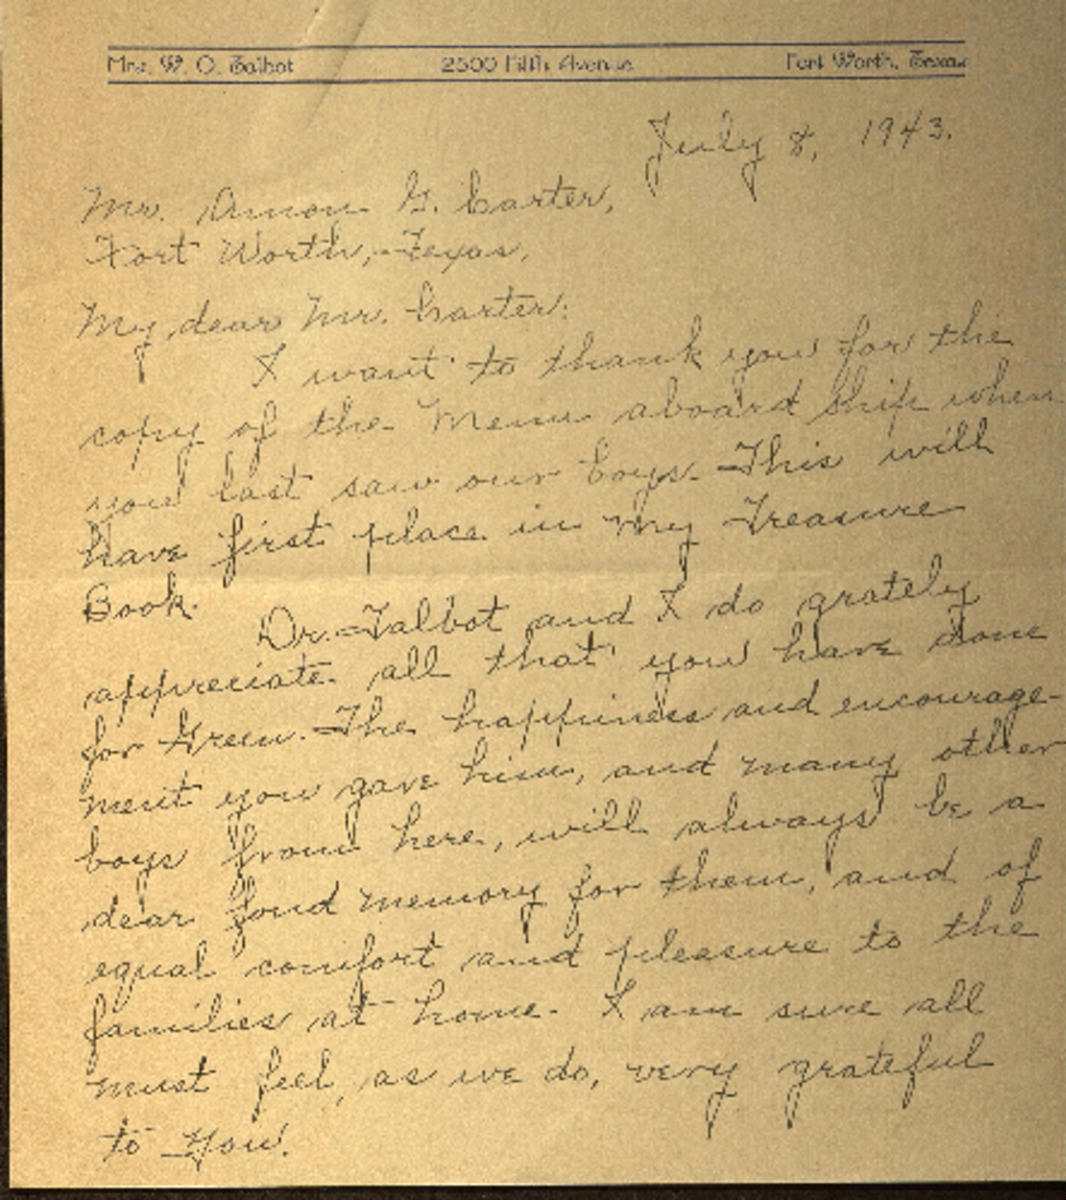 Mrs. W. O. Talbot 2500 Fifth Avenue Fort Worth, Texas
July 8, 1943.
Mr. Amon G. Carter,
Fort Worth, Texas,
My dear Mr. Carter:
I want to thank you for the
copy of the Menu aboard ship when
you last saw our boys. This will
have first place in my Treasure
Book.
Dr. Talbot and I do grately
appreciate all that you have done
for Green. The happiness and encourage-
ment you gave him, and many other
boys from here, will always be a
dear fond memory for them, and of
equal comfort and pleasure to the
families at home. I am sure all
must feel, as we do, very grateful
to You.